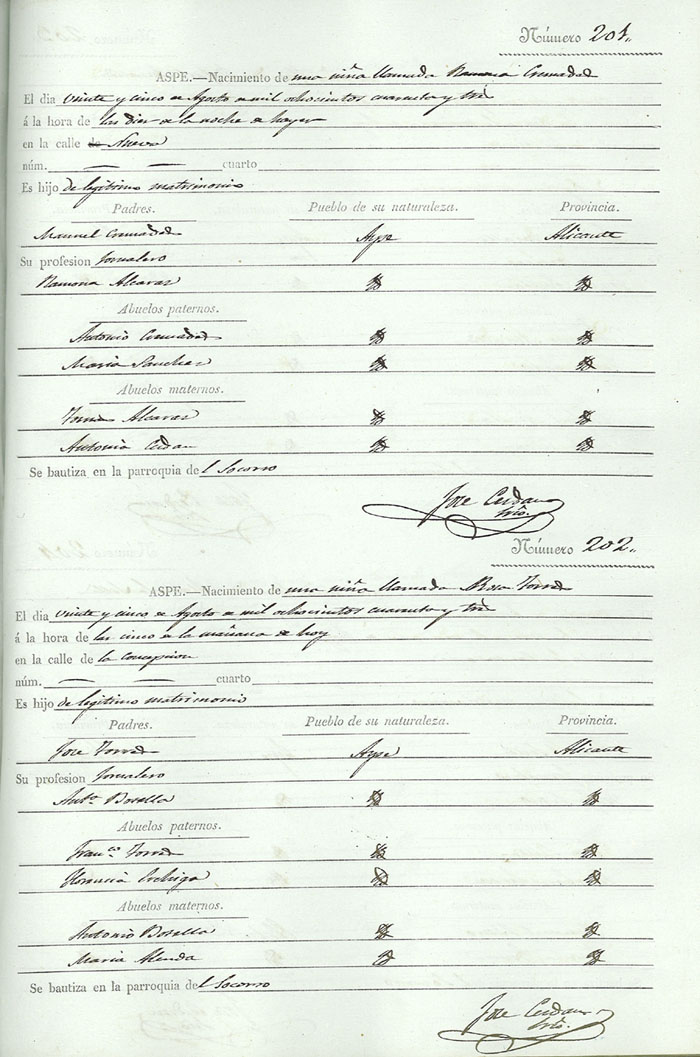 Número 201.
ASPE.—Nacimiento de una niña llamada Ramona Cremades
El dia veinte y cinco de Agosto de mil ochocientos cuarenta y tres
á la hora de las diez de la noche de hayer
en la calle Nueva
núm. — — cuarto
Es hijo de legitimo matrimonio
Padres. Pueblo de su naturaleza. Provincia.
Manuel Cremades Aspe Alicante
Su profesion Jornalero
Ramona Alcaraz
Abuelos paternos.
Antonio Cremades
Maria Sanchez
Abuelos maternos.
Alcaraz
Antonia Cerdan
Se bautiza en la parroquia del Socorro
Jose Cerdan
Srio.
Número 202.
ASPE.—Nacimiento de una niña llamada Rosa Torres
El dia veinte y cinco de Agosto de mil ochocientos cuarenta y tres
á la hora de las cinco de la mañana de hoy
en la calle de la Concepcion
núm. — — cuarto
Es hijo de legitimo matrimonio
Padres. Pueblo de su naturaleza. Provincia.
Jose Torres Aspe Alicante
Su profesion Jornalero
Antª Botella
Abuelos paternos.
Franco Torres
Abuelos maternos.
Antonio Botella
Maria Alenda
Se bautiza en la parroquia del Socorro
Jose Cerdan
Srio.